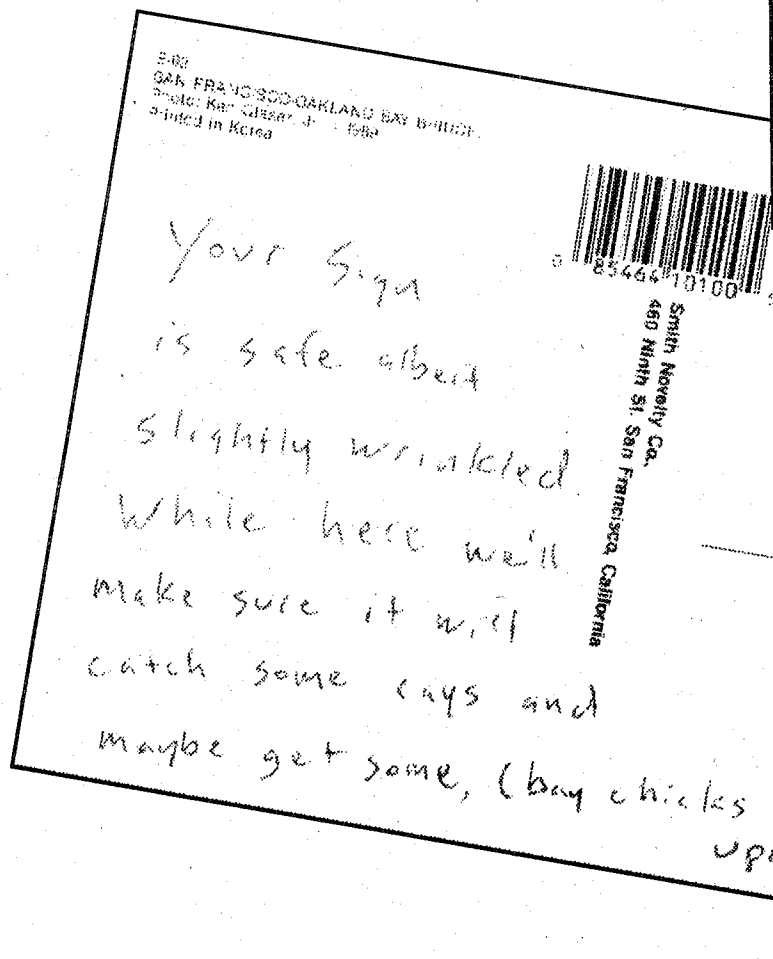 SAN FRANCISCO-OAKLAND BAY BRIDGE
Photo: Ken Glaser, Jr.
Printed in Korea
0 85464 10100
Smith Novelty Co.
460 Ninth St. San Francisco, California
Your Sign
is safe albeit
slightly wrinkled.
While here we'll
make sure it will
catch some rays and
maybe get some, (bay chicks